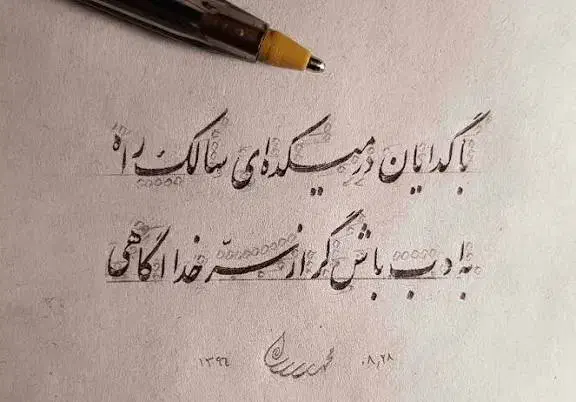 با گدایان در میکده ای سالک راه
به ادب باش گر از سرّ خدا آگاهی
۱۳۹۴
۰۸٫۲۸